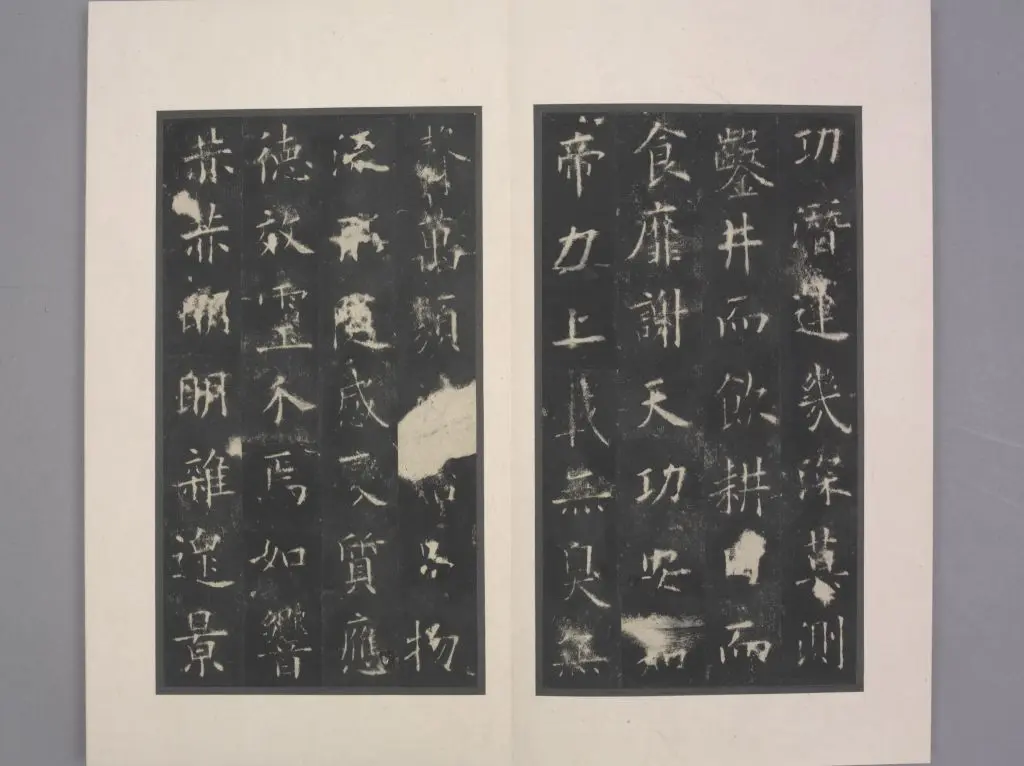 功潛運幾深莫測
鑿井而飲耕田而
食靡謝天功安知
帝力上無臭無
聲萬類品物
流形隨感變質應
德效靈介焉如響
赫赫明明雜遝景